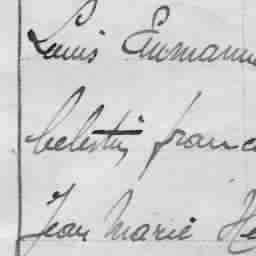 Louis Emmanu
Celestin franc
Jean Marie He